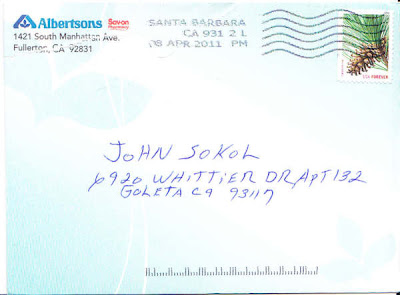 Albertsons Savon
1421 South Manhattan Ave.
Fullerton, CA 92831
SANTA BARBARA
CA 931 2 L
08 APR 2011 PM
USA FOREVER
JOHN SOKOL
6920 WHITTIER DR APT 132
GOLETA CA 93117